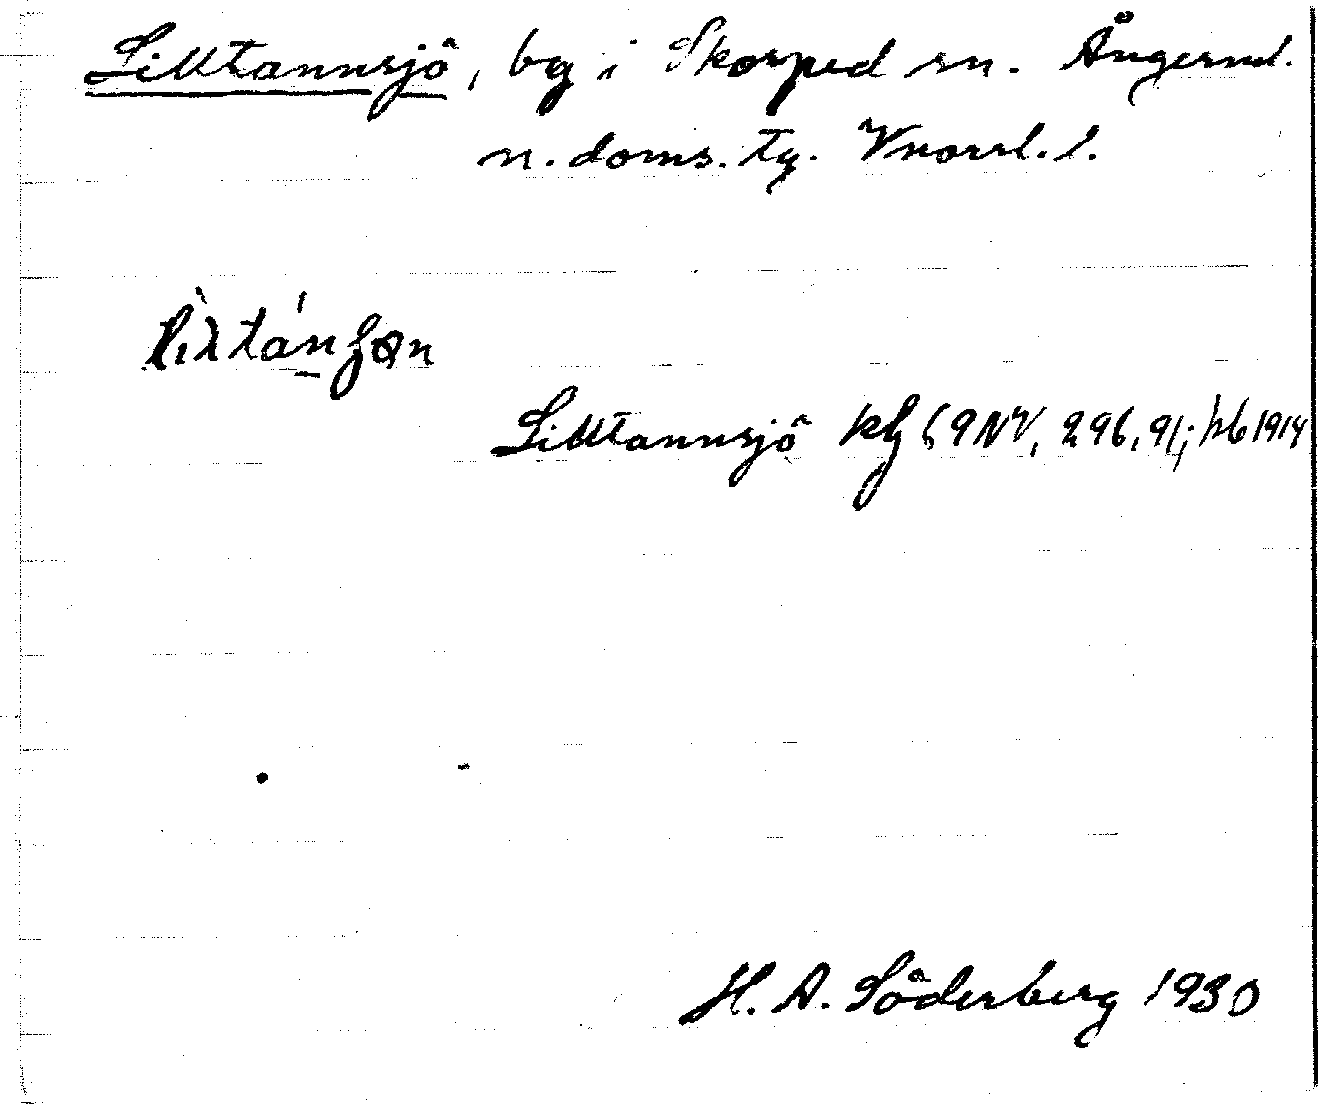 Silltannsjö, bg i Skorped sn. Ångerml.
n. doms. tg. Vnorrl. l.
Silltannsjö kg 69 NV, 296, 91; hb 1914
H. A. Söderberg 1930